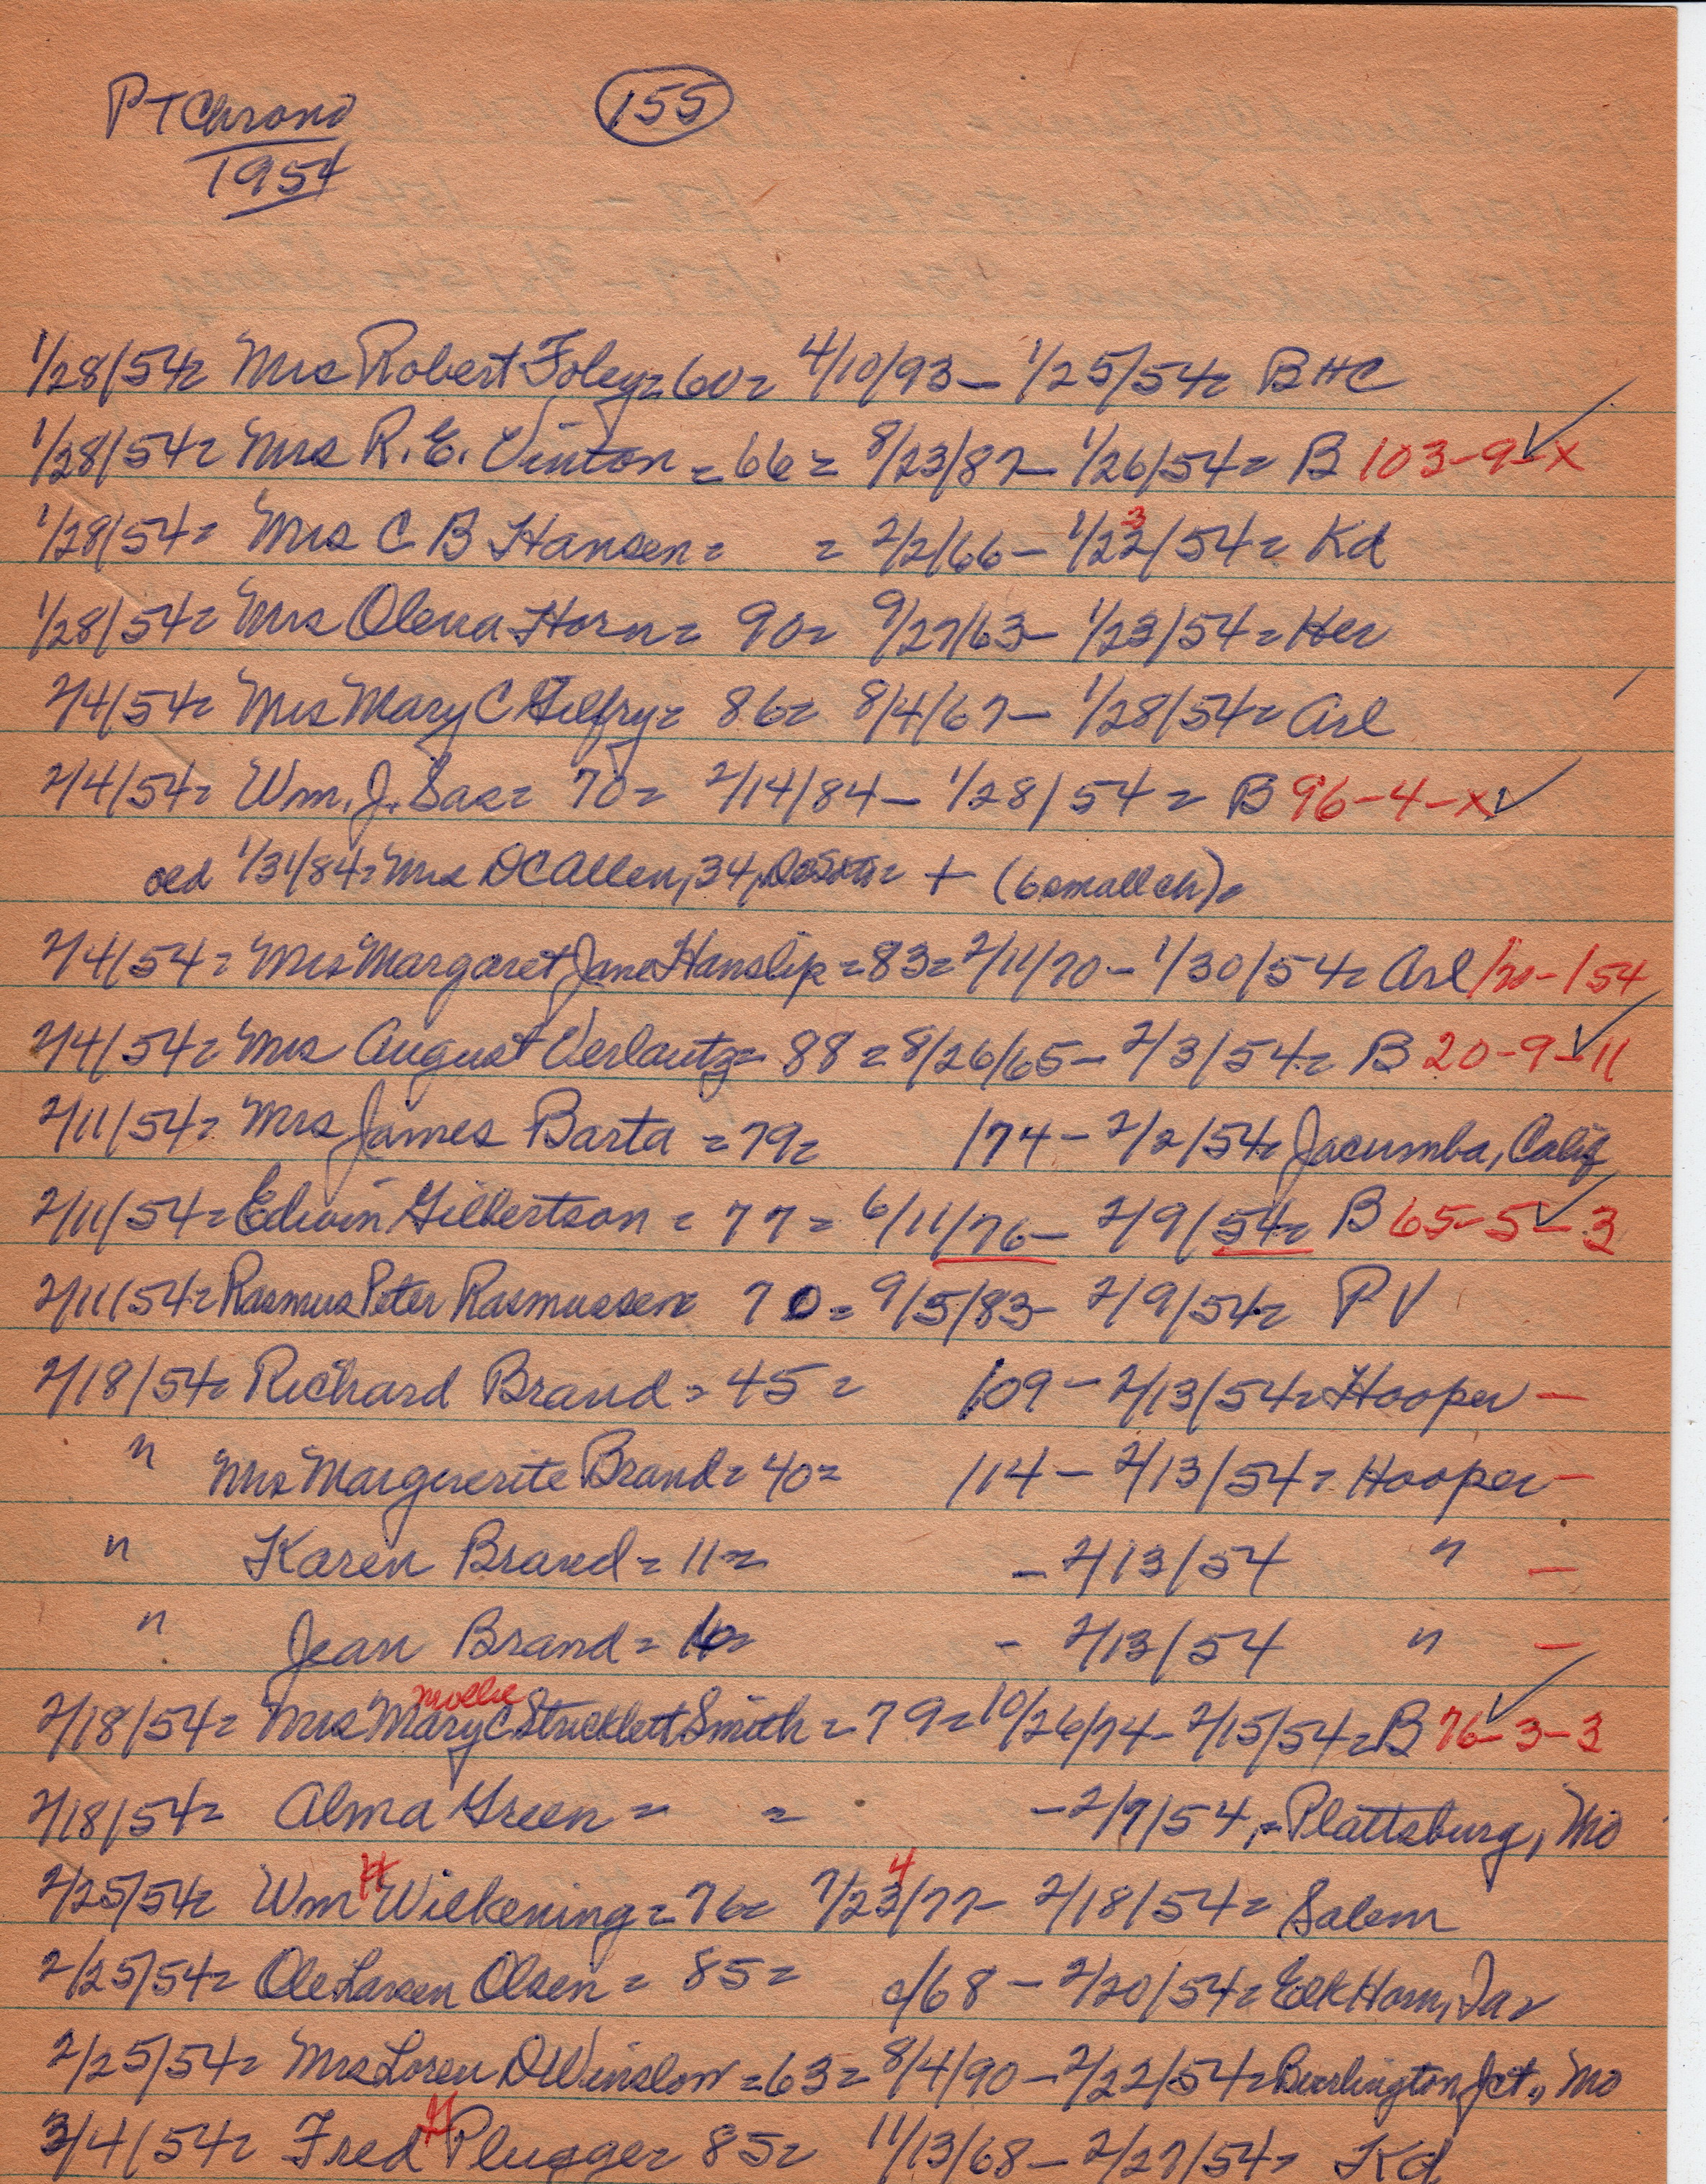 PT Chrono 155
1954
1/28/54= Mrs Robert Foley=60= 4/10/93- 1/25/54= BHC
1/28/54= Mrs R. E. Vinton =66= 8/23/87- 1/26/54= B 103-9-x ✓
1/28/54= Mrs C B Hansen= = 2/2/66- 1/22/54= Kd
3
1/28/54= Mrs Olena Horn= 90= 9/27/63- 1/23/54= Her
2/4/54= Mrs Mary C Gilfry= 86= 8/4/67- 1/28/54= Arl
2/4/54= Wm. J. Sas= 70= 2/14/84- 1/28/54= B 96-4-x ✓
1/31/84= Mrs DC Allen, 34, + (6 small ch)=
2/4/54= Mrs Margaret Jane Hanslip =83= 2/11/70- 1/30/54= Arl /20-154
2/4/54= Mrs August Verlautz= 88= 8/26/65- 2/3/54= B 20-9-11 ✓
2/11/54= Mrs James Barta =79= /74- 2/2/54= Jacumba, Calif
2/11/54= Edwin Gilbertson = 77= 6/11/76- 2/9/54= B 65-5-3 ✓
2/11/54= Rasmus Peter Rasmussen= 70= 9/5/83- 2/9/54= PV
2/18/54= Richard Brand= 45= /09- 2/13/54= Hooper -
" Mrs Marguerite Brand= 40= /14- 2/13/54= Hooper -
" Karen Brand= 11= - 2/13/54 " -
" Jean Brand= - 2/13/54 " -
Mollie
2/18/54= Mrs Mary C Stricklett Smith =79= 10/26/74- 2/15/54= B 76-3-3 ✓
2/18/54= Alma Green= = -2/7/54,= Plattsburg, Mo
H 4
2/25/54= Wm Wilkening= 76= 7/23/77- 2/18/54= Salem
2/25/54= Ole Larsen Olsen= 85= c/68- 2/20/54= Elk Horn, Ia=
2/25/54= Mrs Loren D Winslow =63= 8/4/90- 2/22/54= Burlington Jct., Mo
H
3/4/54= Fred Plugge= 85= 11/13/68- 2/27/54= Kd